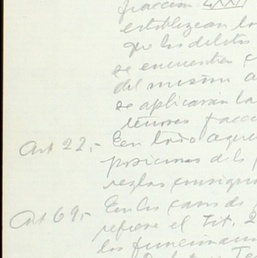 fracción LXXI
establezcan lo
que los delitos
se encuentra
del mismo a
se aplicarán la
Art 22.- En todo aque
posiciones de la
reglas consign
Art 69.- En los casos de
refiere el Tit. 2
los funcionari